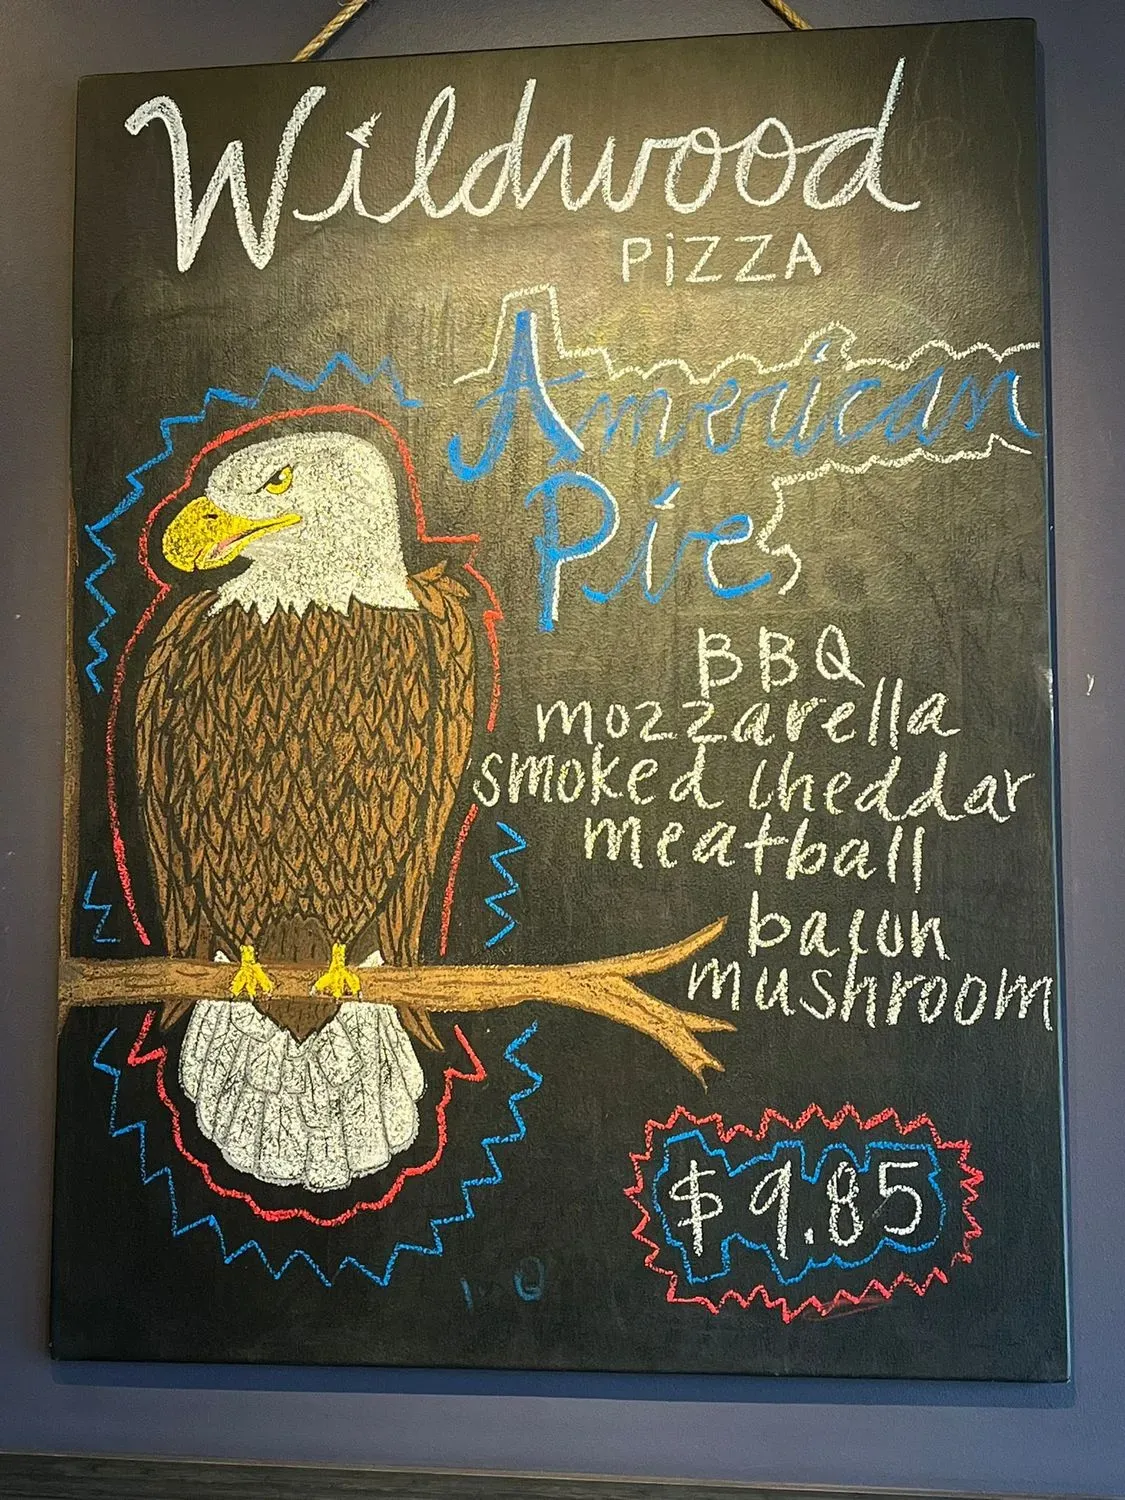 Wildwood
PiZZA
American
Pie
BBQ
mozzarella
smoked cheddar
meatball
bacon
mushroom
$9.85